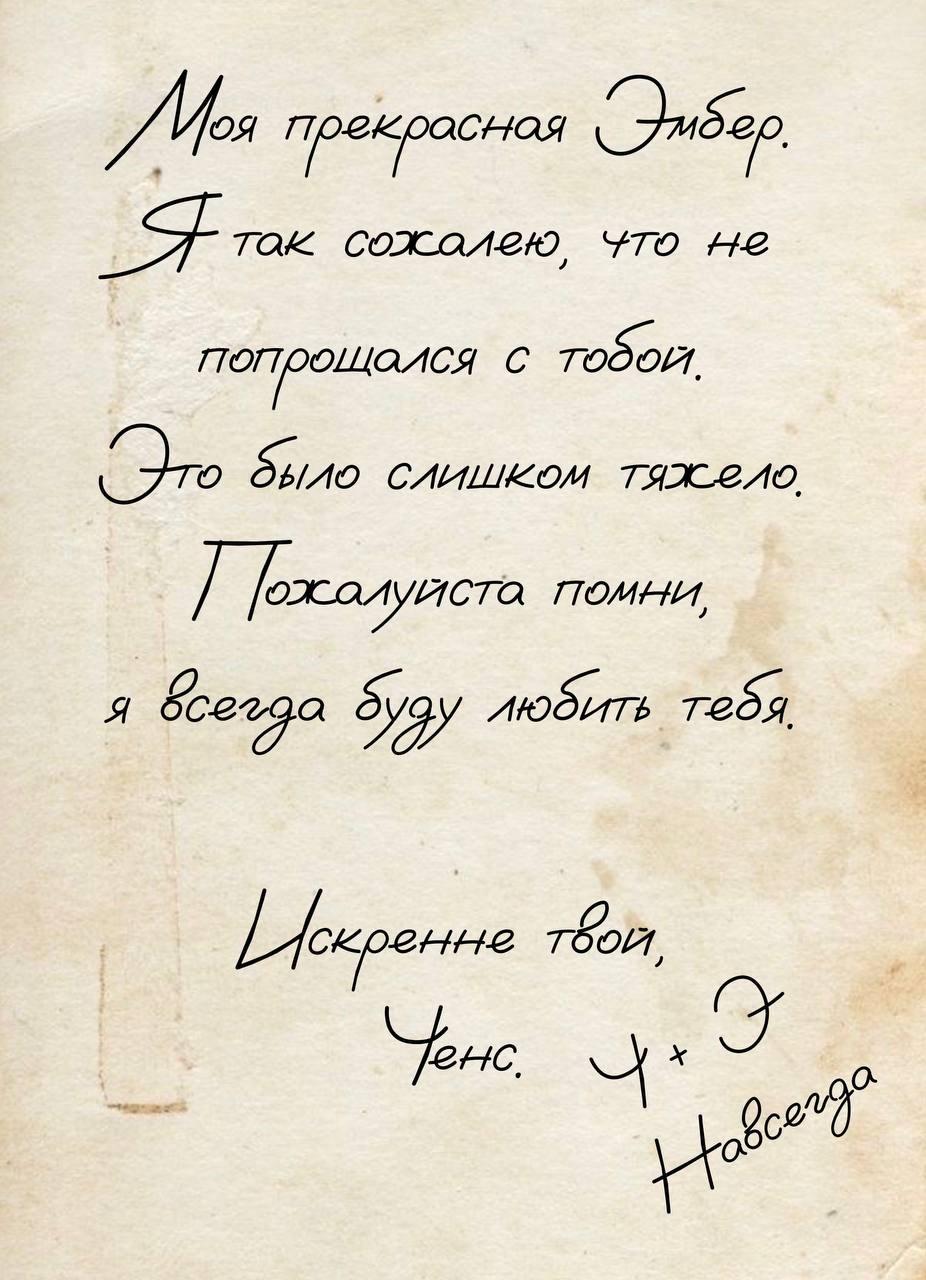 Моя прекрасная Эмбер.
Я так сожалею, что не
попрощался с тобой.
Это было слишком тяжело.
Пожалуйста помни,
я всегда буду любить тебя.
Искренне твой,
Ченс.
Ч + Э
Навсегда